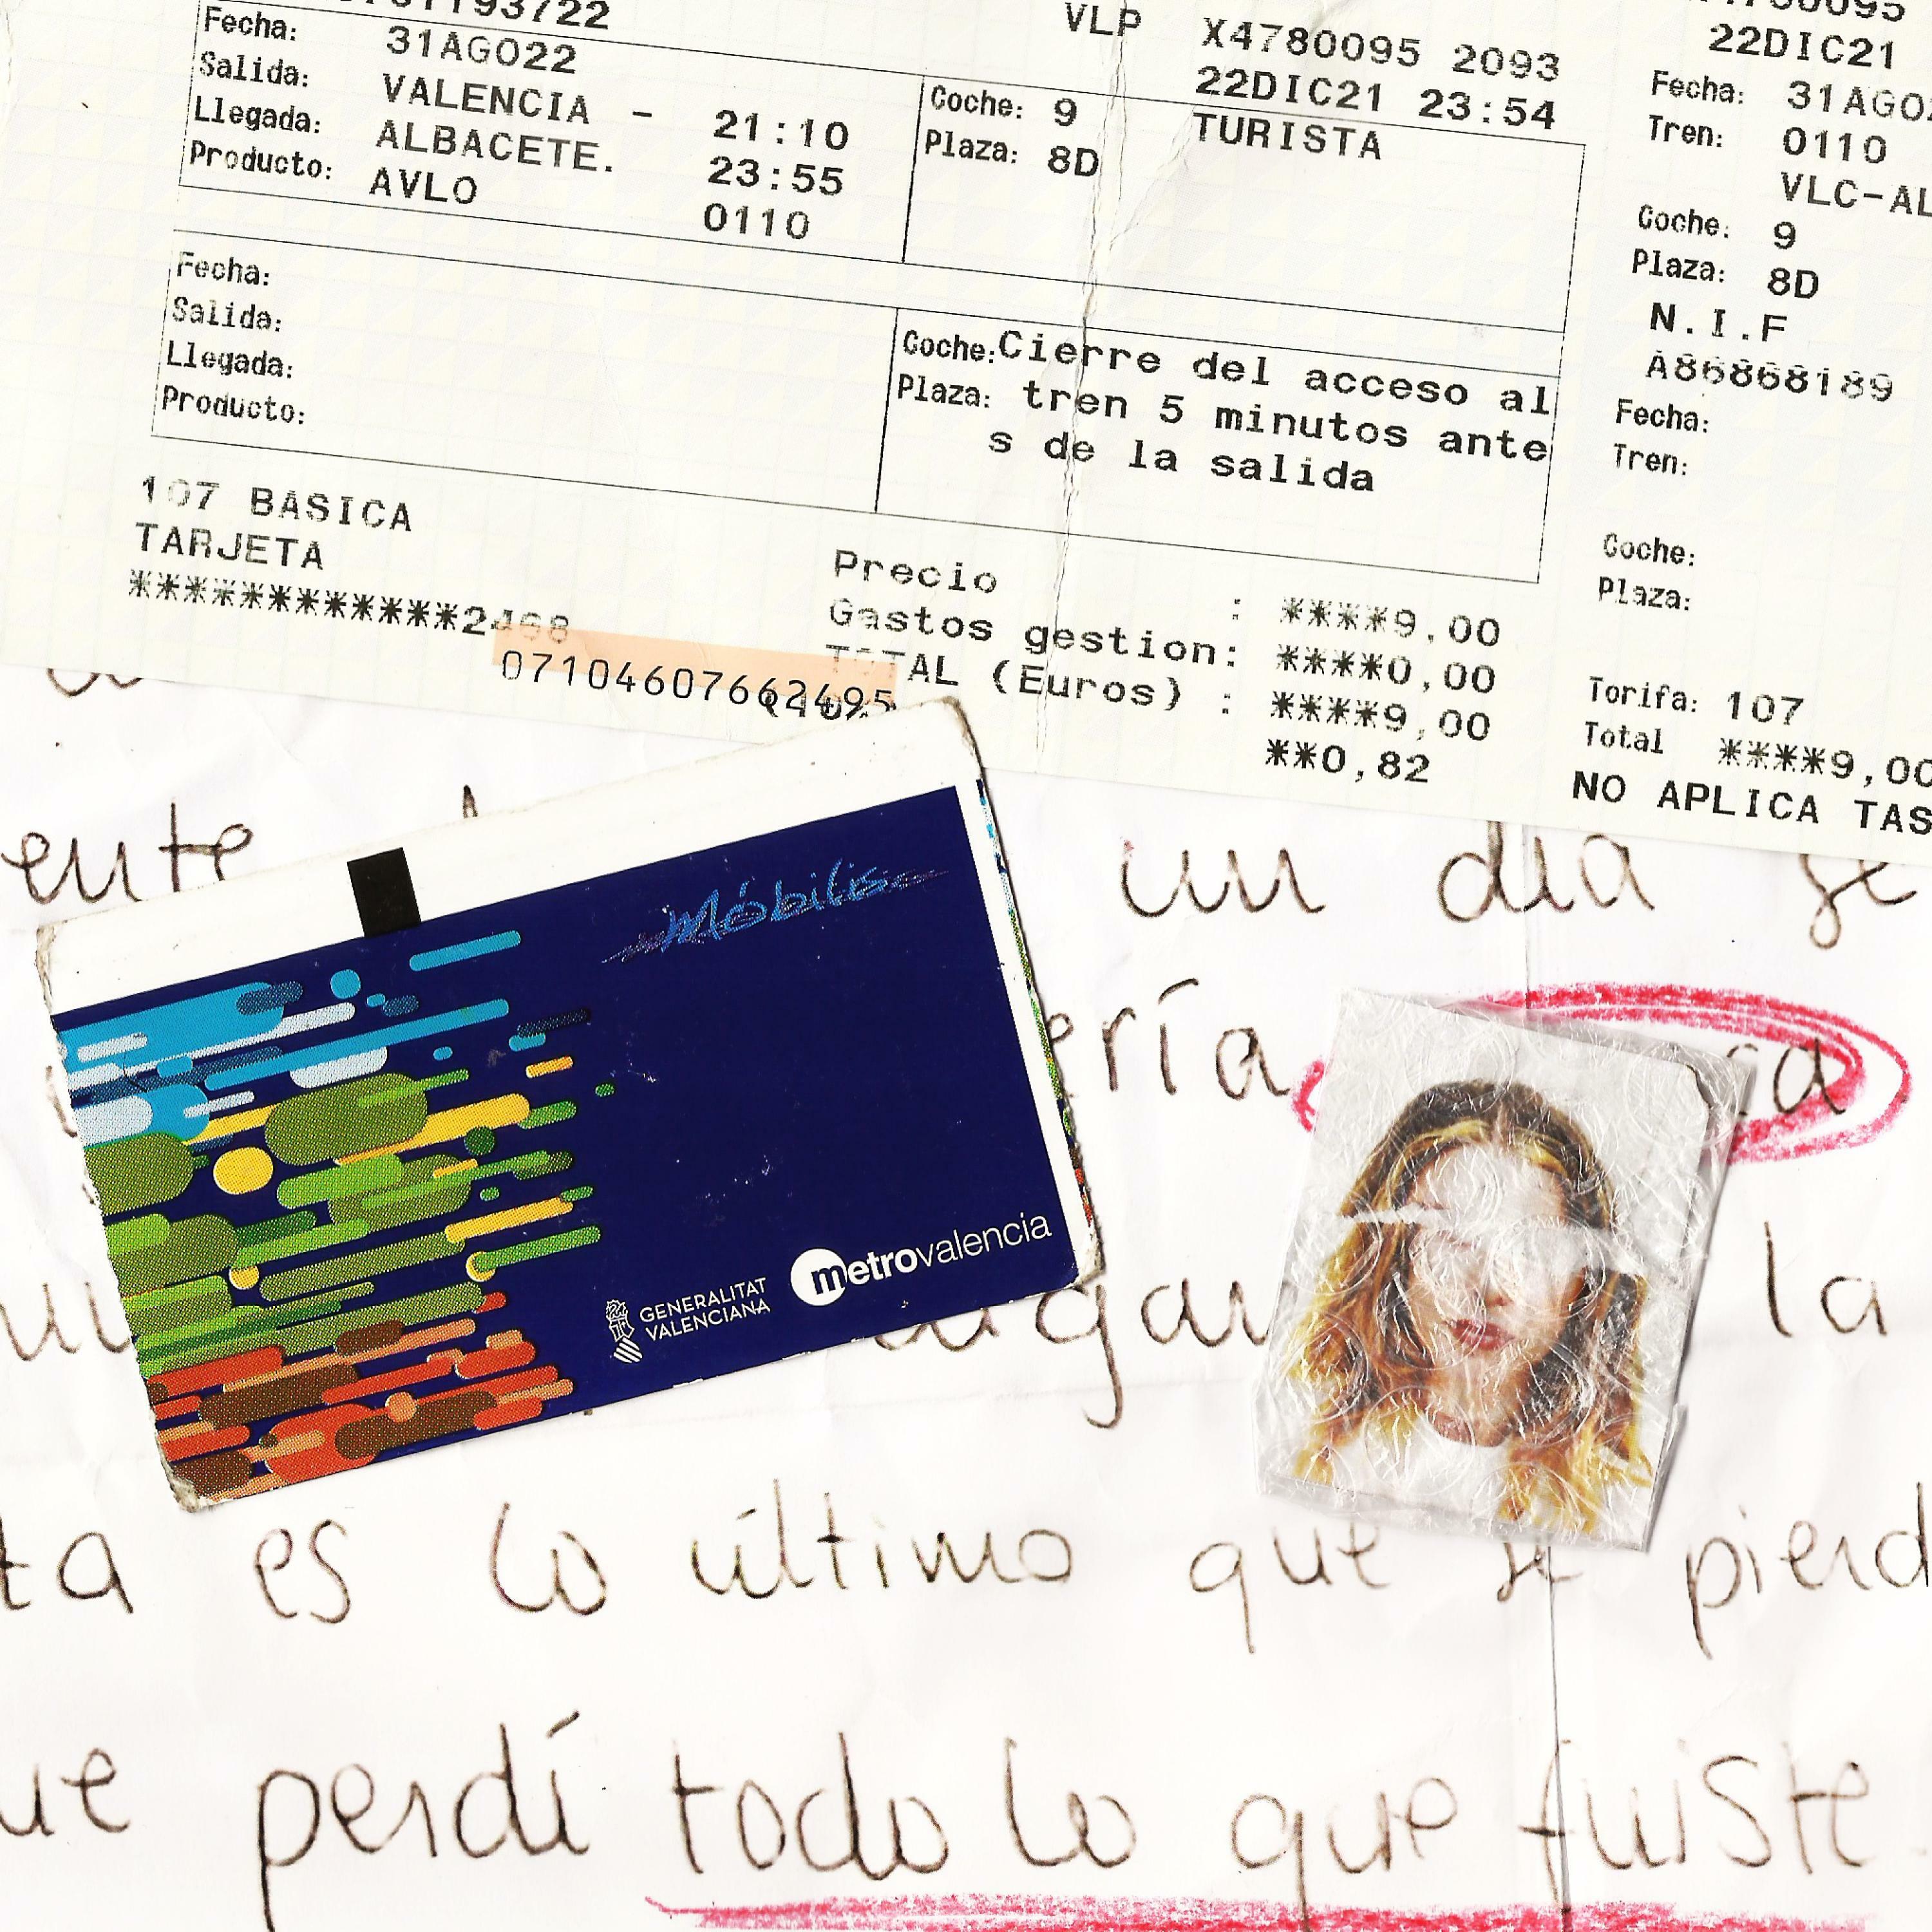 Fecha: 31AGO22
Salida: VALENCIA - 21:10
Llegada: ALBACETE. 23:55
Producto: AVLO 0110
Coche: 9
Plaza: 8D
VLP X4780095 2093
22DIC21 23:54
TURISTA
Fecha:
Salida:
Llegada:
Producto:
Coche: Cierre del acceso al
Plaza: tren 5 minutos ante
s de la salida
107 BASICA
TARJETA
*************2468
07104607662495
Precio : ****9,00
Gastos gestion: ****0,00
TOTAL (Euros) : ****9,00
**0,82
22DIC21
Fecha: 31AGO
Tren: 0110
VLC-AL
Coche: 9
Plaza: 8D
N.I.F
A86868189
Fecha:
Tren:
Coche:
Plaza:
Torifa: 107
Total ****9,00
NO APLICA TAS
Móbilis
GENERALITAT
VALENCIANA
metrovalencia
ente un día se
ería
la
ta es lo último que se pierd
ue perdí todo lo que fuiste.